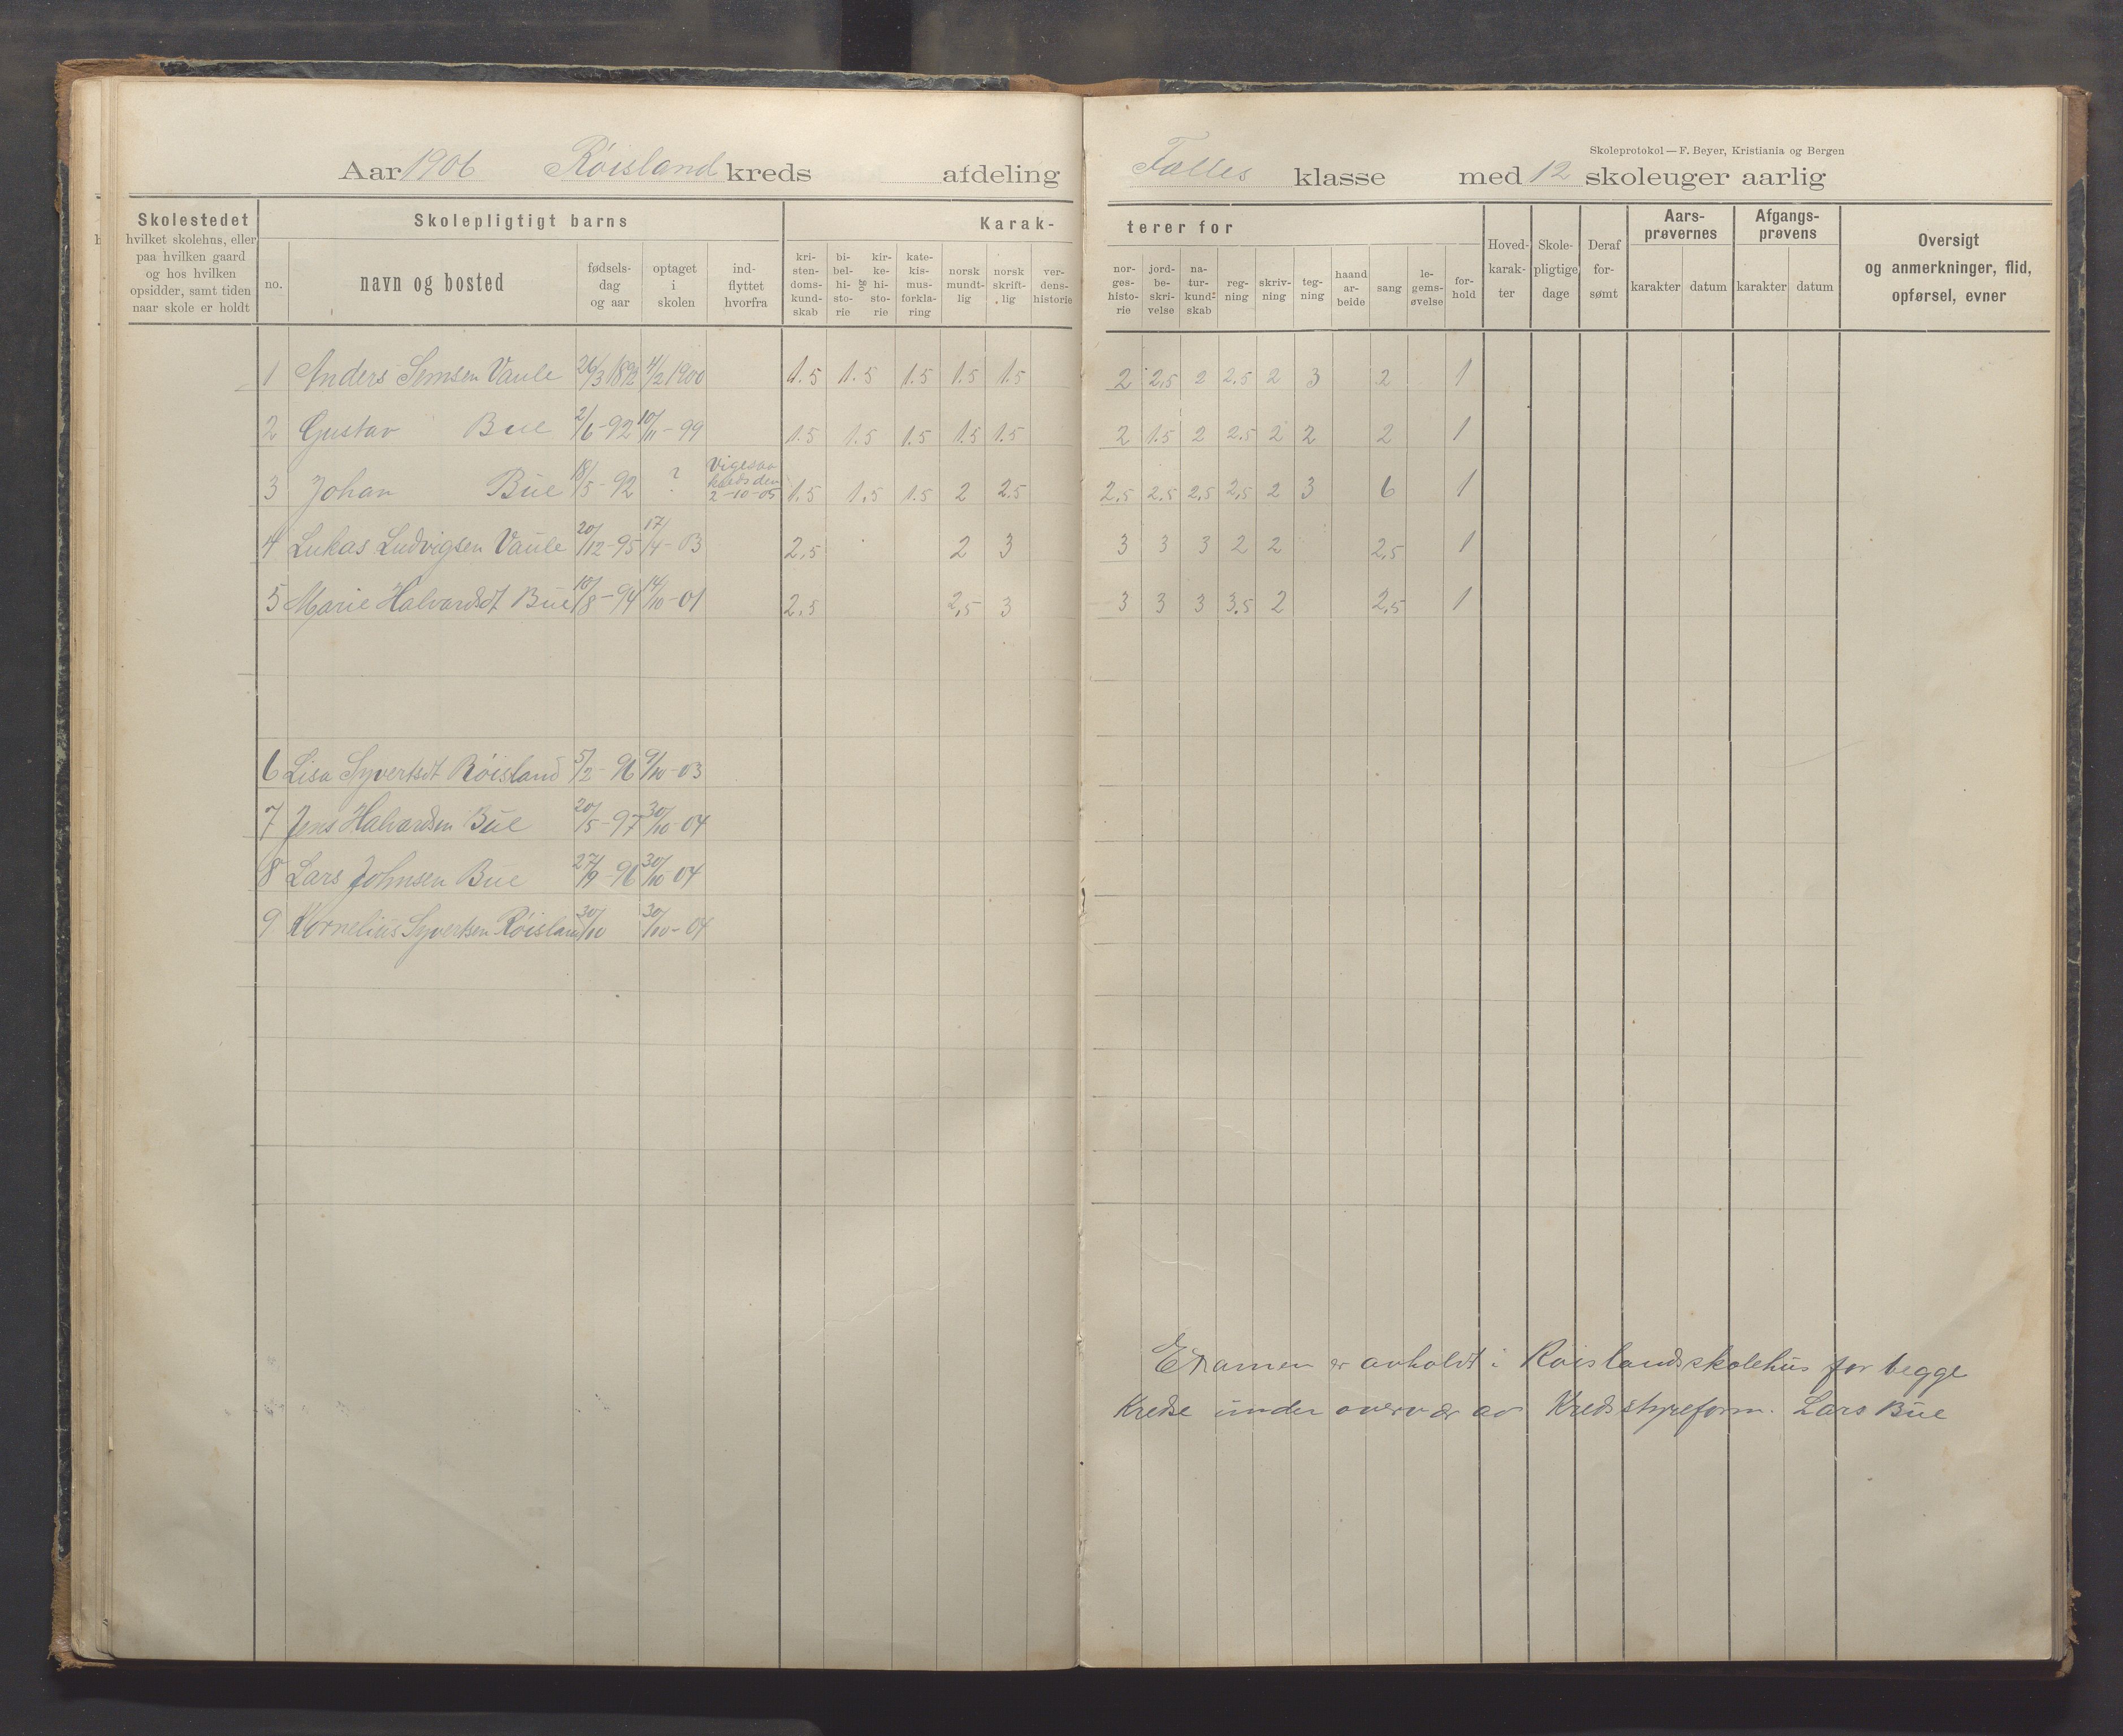 Skoleprotokol — F. Beyer, Kristiania og Bergen
Aar 1906 Røisland kreds afdeling Fælles klasse med 12 skoleuger aarlig
Skolestedet
hvilket skolehus, eller
paa hvilken gaard
og hos hvilken
opsidder, samt tiden
naar skole er holdt
Skolepligtigt barns
no.
navn og bosted
fødsels-
dag
og aar
optaget
i
skolen
ind-
flyttet
hvorfra
Karak-
kri-
sten-
doms-
kund-
skab
bi-
bel-
hi-
sto-
rie
og
kir-
ke-
hi-
sto-
rie
kate-
kis-
mus-
forkla-
ring
norsk
mundt-
lig
norsk
skrift-
lig
ver-
dens-
historie
terer for
nor-
ges-
histo-
rie
jord-
be-
skri-
velse
na-
tur-
kund-
skab
reg-
ning
skriv-
ning
teg-
ning
haand
ar-
beide
sang
le-
gems-
øvelse
for-
hold
Hoved-
karak-
ter
Skole-
pligtige
dage
Deraf
for-
sømt
Aars-
prøvernes
karakter datum
Afgangs-
prøvens
karakter datum
Oversigt
og anmerkninger, flid,
opførsel, evner
1 Anders Semsen Vaule 26/3 1892 4/2 1900 1.5 1.5 1.5 1.5 1.5 2 2,5 2 2,5 2 3 2 1
2 Gustav Bue 2/6-92 10/11-99 1.5 1.5 1.5 1.5 1.5 2 1.5 2 2.5 2 2 2 1
3 Johan Bue 18/5-92 ? 2-10-05 1.5 1,5 1.5 2 2.5 2,5 2.5 2,5 2,5 2 3 6 1
4 Lukas Ludvigsen Vaule 20/12-95 17/4-03 2,5 2 3 3 3 3 2 2 2,5 1
5 Marie Halvardsdt Bue 10/8-94 14/10-01 2,5 2,5 3 3 3 3 3.5 2 2,5 1
6 Lisa Syvertsdt Røisland 5/2-96 9/10-03
7 Jens Halvardsen Bue 20/5-97 30/10-04
8 Lars Johnsen Bue 27/9-96 30/10-04
9 Kornelius Syvertsen Røisland 30/10 30/10-04
Examen er avholdt i Røislandskolehus for begge
Kredse under overvær av Kredsstyreform. Lars Bue